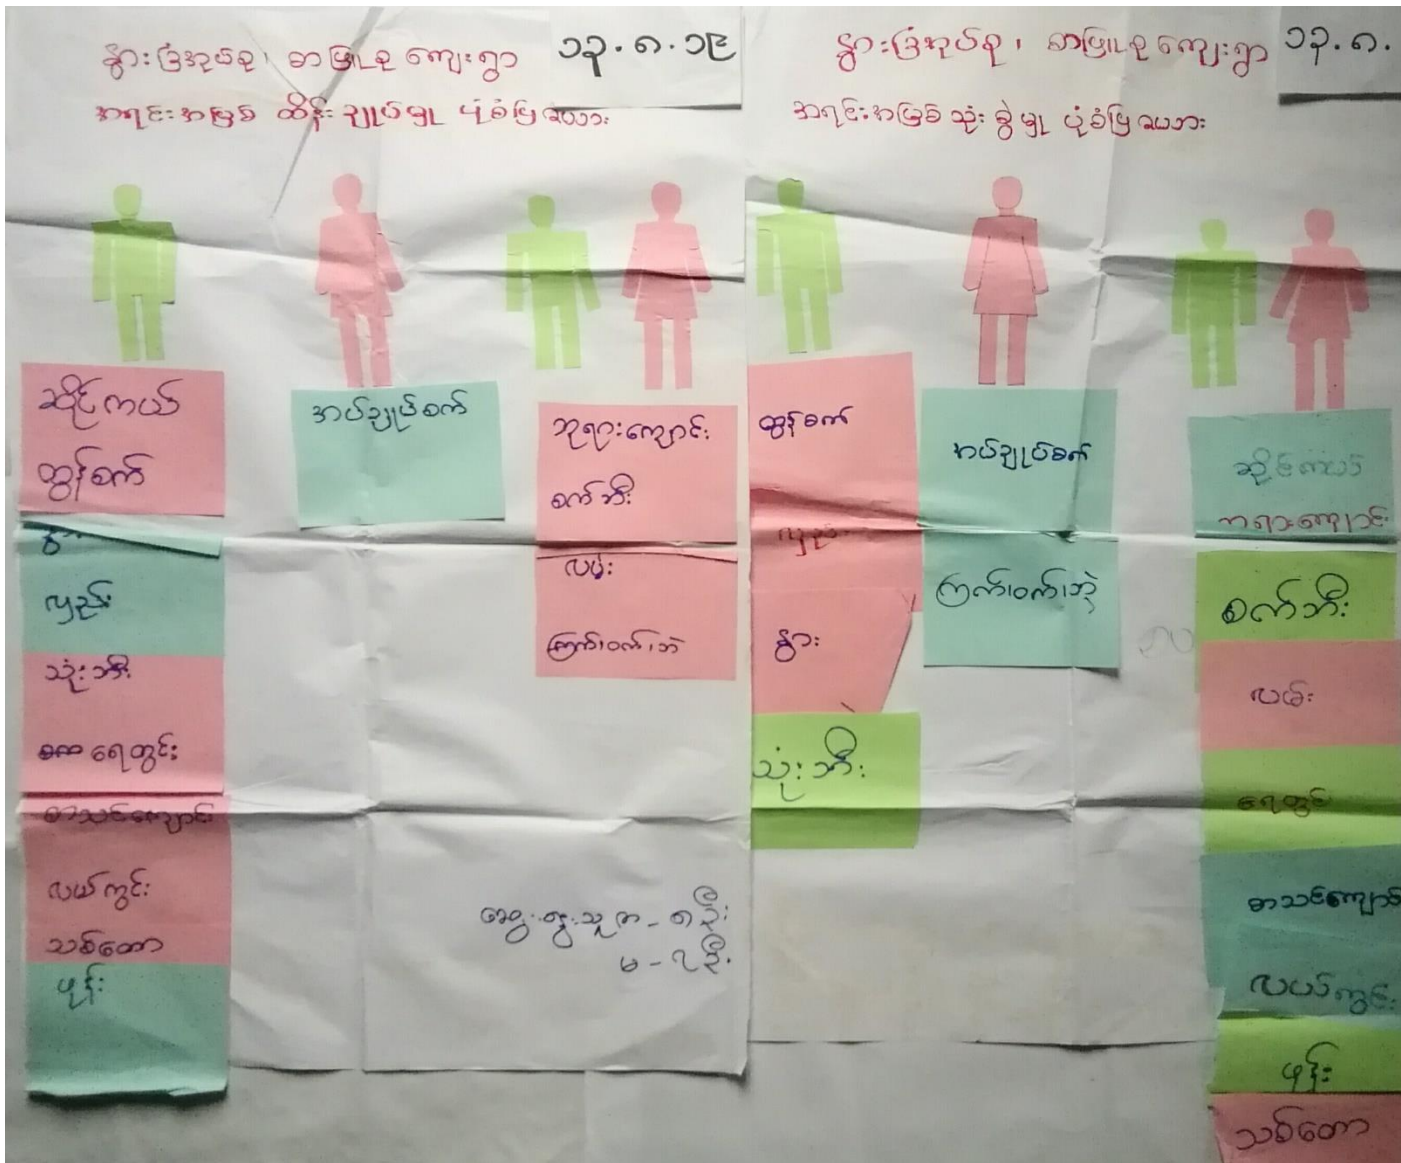 နွားဒြံအုပ်စု၊ စာဖြူစု ကျေးရွာ
၁၃.၈.၁၉
အရင်းအမြစ် ထိန်းချုပ်မှု ပုံစံပြဇယား
ဆိုင်ကယ်
ထွန်စက်
နွား
လှည်း
သုံးဘီး
ရေတွင်း
စာသင်ကျောင်း
လယ်ကွင်း
သစ်တော
ဖုန်း
အပ်ချုပ်စက်
ဘုရားကျောင်း
စက်ဘီး
လမ်း
ကြက်၊ဝက်၊ဘဲ
ဆွေးနွေးသူ ကျား - ၈ ဦး
မ - ၇ ဦး
နွားဒြံအုပ်စု၊ စာဖြူစု ကျေးရွာ
၁၃.၈.
အရင်းအမြစ် သုံးစွဲမှု ပုံစံပြဇယား
ထွန်စက်
လှည်း
နွား
သုံးဘီး
အပ်ချုပ်စက်
ကြက်၊ဝက်၊ဘဲ
ဆိုင်ကယ်
ဘုရားကျောင်း
စက်ဘီး
လမ်း
ရေတွင်း
စာသင်ကျောင်း
လယ်ကွင်း
ဖုန်း
သစ်တော